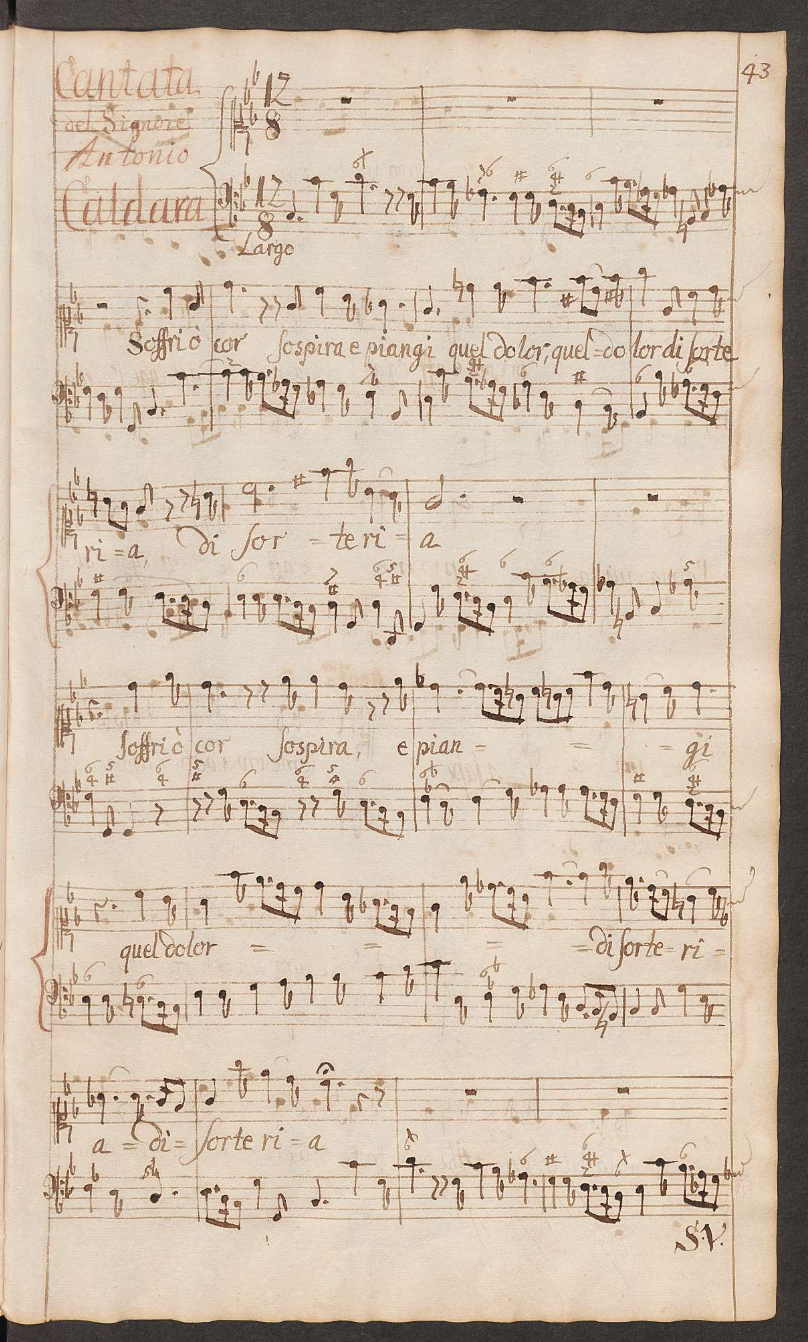 43
Cantata
del Signore
Antonio
Caldara
12
8
12
8
Largo
Soffri ò cor sospira e piangi quel dolor, quel=dolor di sorte
ri=a, di sor=te ri=a
soffri ò cor sospira, e pian= = =gi
quel dolor = = = =di sorte=ri=
a=di=sorte ri=a
S.V.